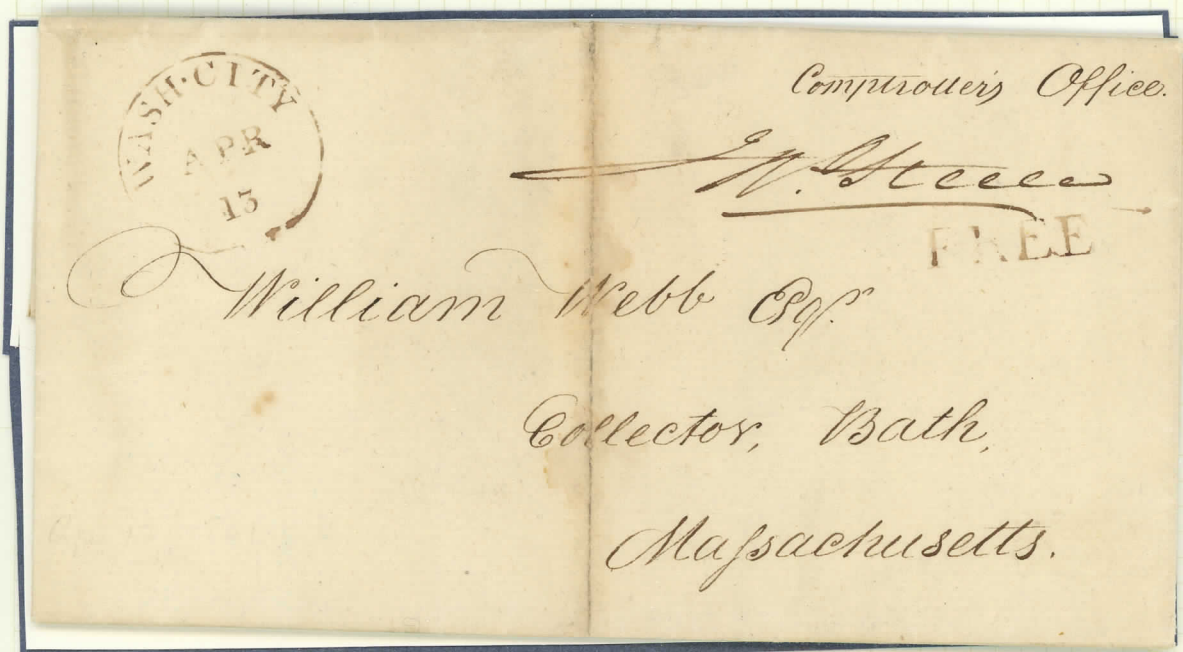 WASH·CITY
APR
13
Comptroller's Office.
FREE
William Webb Esqr.
Collector, Bath,
Maſsachusetts.